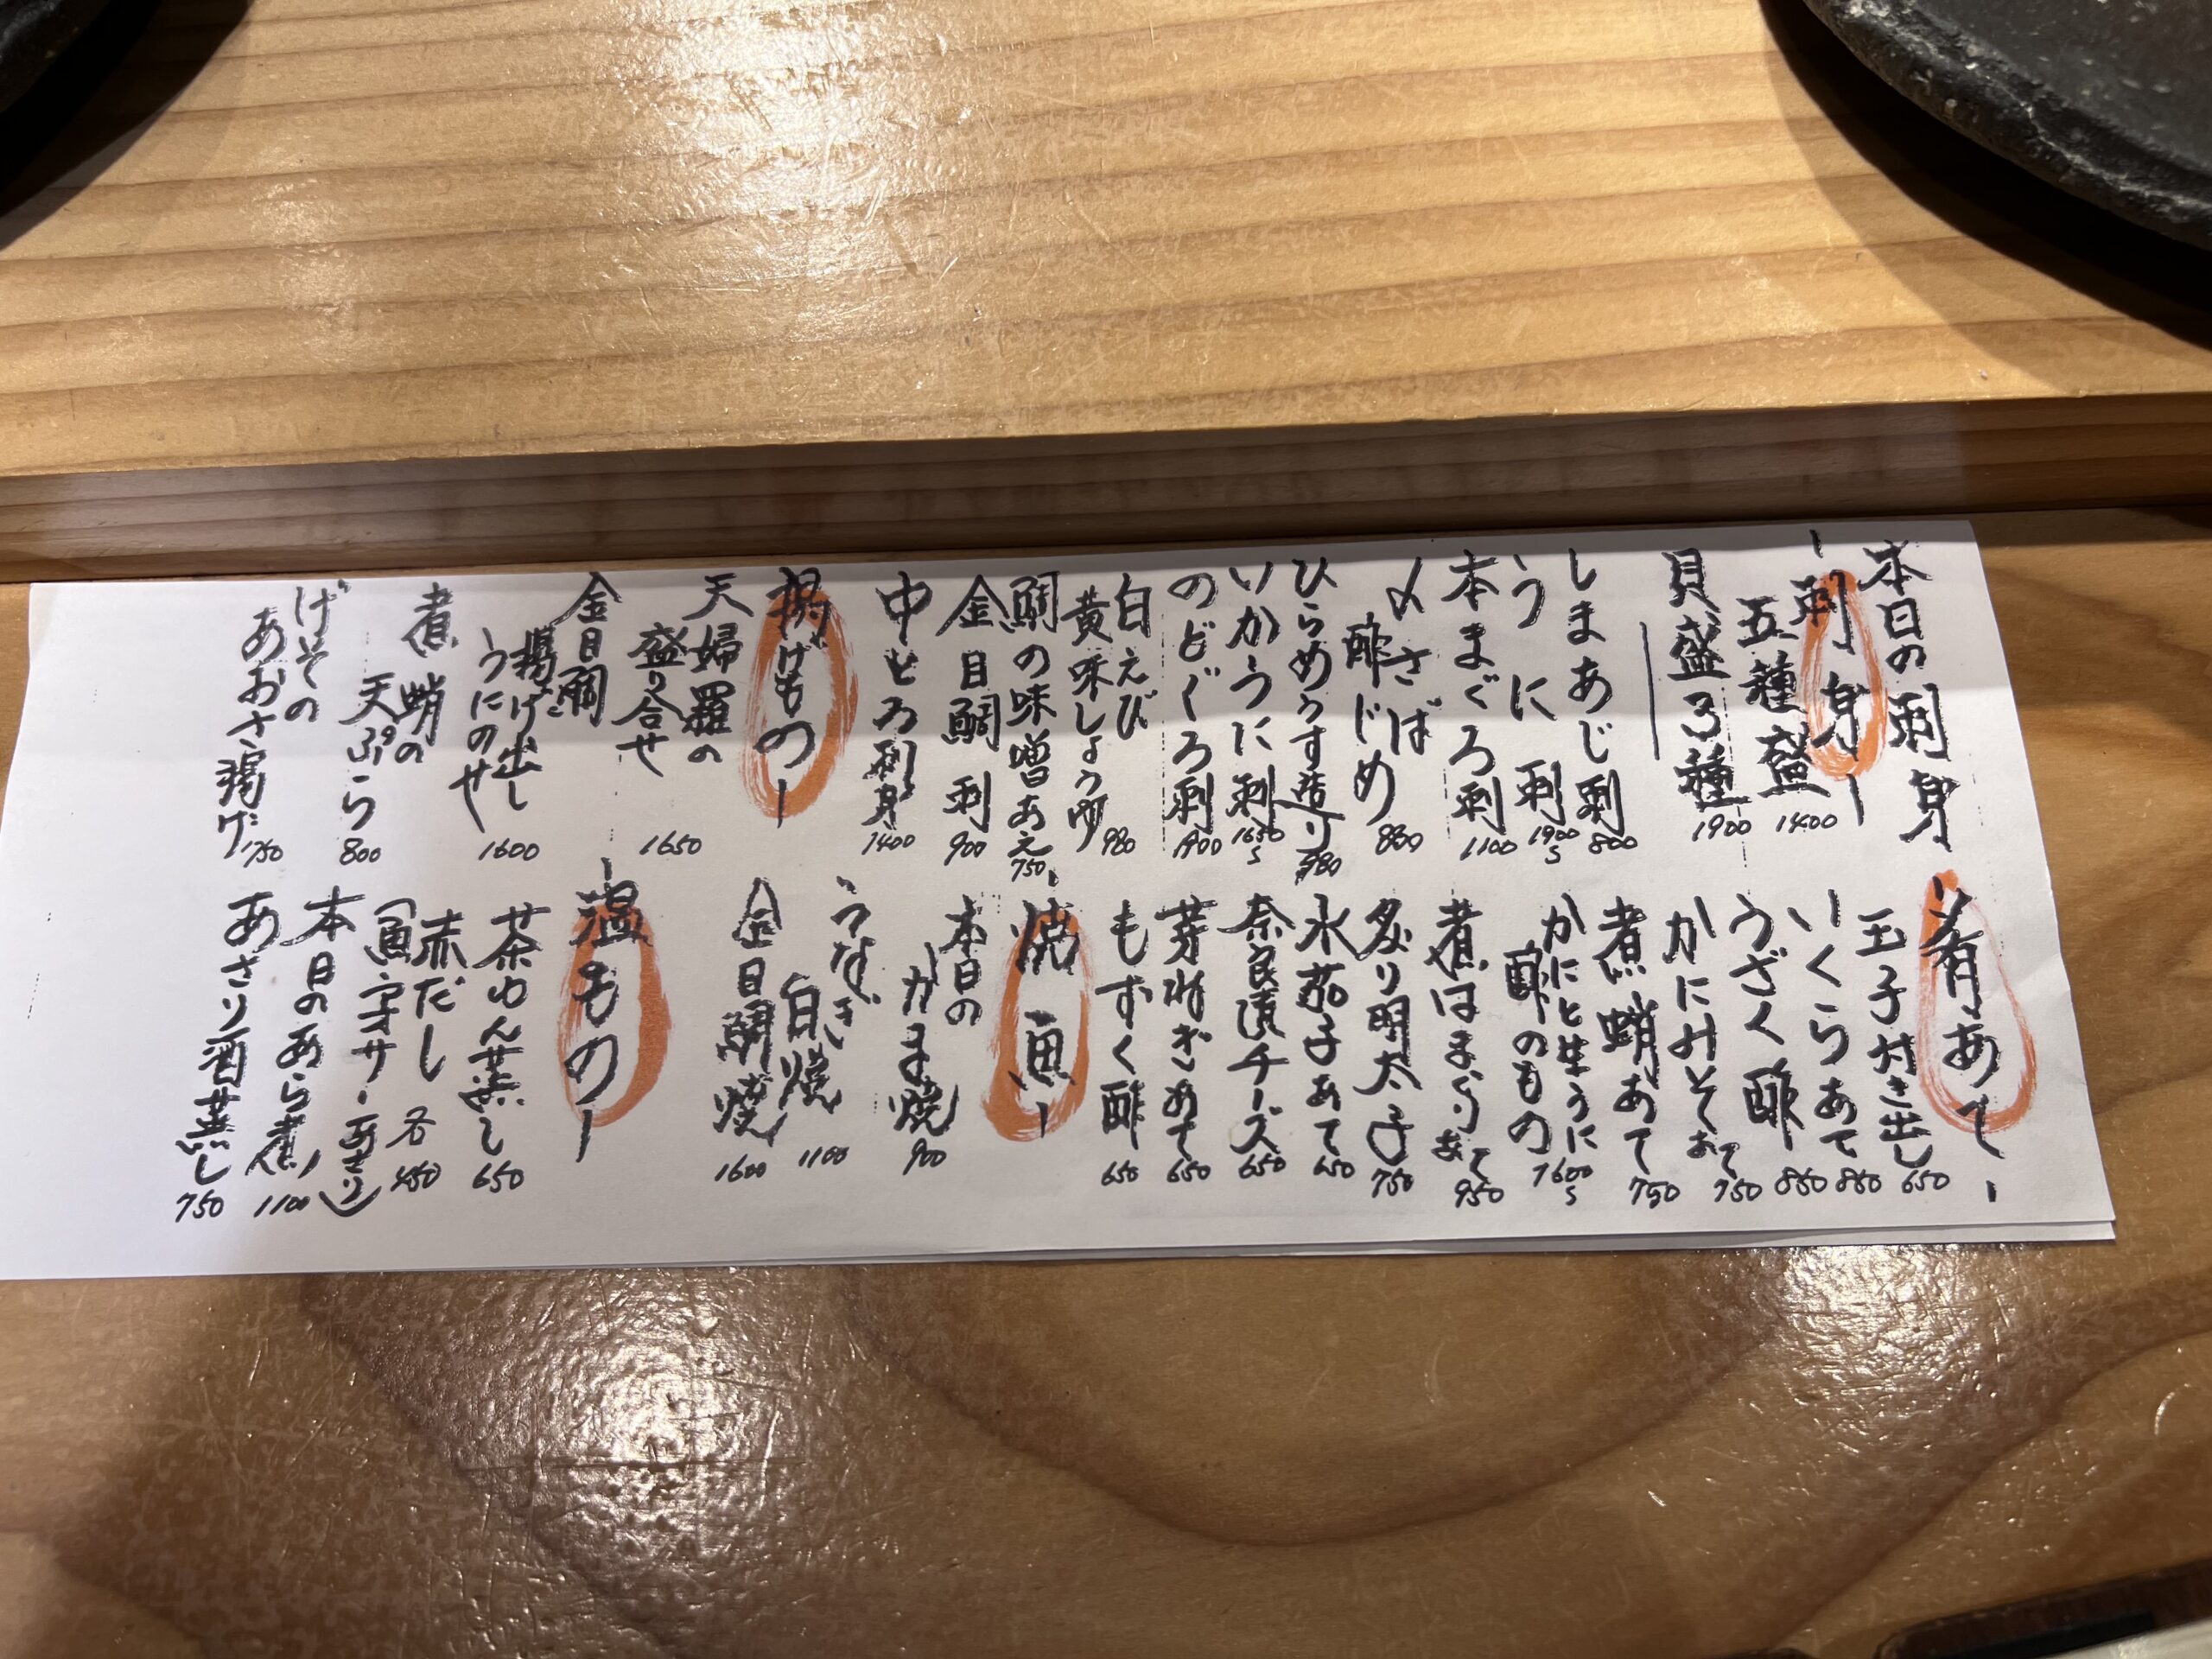 本日の刺身
ー刺身ー
五種盛 1400
貝盛3種 1900
しまあじ刺 800
うに刺 1900
本まぐろ刺 1100
〆さば
酢じめ 880
ひらめうす造り 980
いかうに刺 1650
のどぐろ刺 1900
白えび
黄味しょうゆ 980
鯛の味噌あえ 750
金目鯛刺 900
中とろ刺身 1400
揚げものー
天婦羅の
盛り合せ 1650
金目鯛
揚げ出し
うにのせ 1600
煮蛸の
天ぷら 800
げその
あおさ揚げ 750
ー肴あてー
玉子付き出し 650
いくらあて 850
うざく酢 850
かにみそあて 750
煮蛸あて 750
かにと生うに
酢のもの 1600
煮はまぐりあて 950
炙り明太子 750
水茄子あて 650
奈良漬チーズ 650
芽ねぎあて 650
もずく酢 650
ー焼魚ー
本日の
かま焼 900
うなぎ
白焼 1100
金目鯛焼 1600
ー温ものー
茶わん蒸し 650
赤だし 各450
(魚・アオサ・あさり)
本日のあら煮 1100
あさり酒蒸し 750